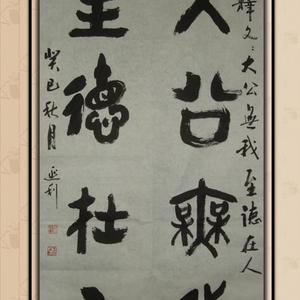 釋文：大公無我至德在人
大公無我
至德在人
癸巳秋月